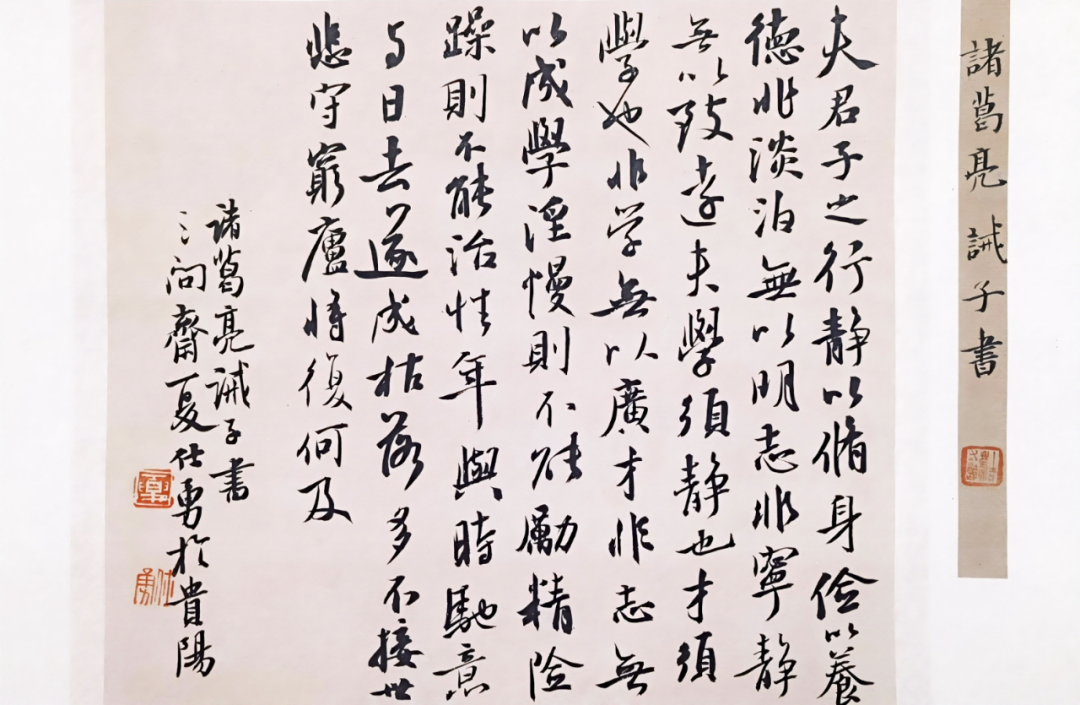 諸葛亮誡子書
夫君子之行静以脩身儉以養
德非淡泊無以明志非寧静
無以致遠夫學須静也才須
學也非学無以廣才非志無
以成學淫慢則不能勵精險
躁則不能治性年與時馳意
与日去遂成枯落多不接世
悲守窮廬将復何及
诸葛亮诫子書
三问齋夏仕勇於貴陽